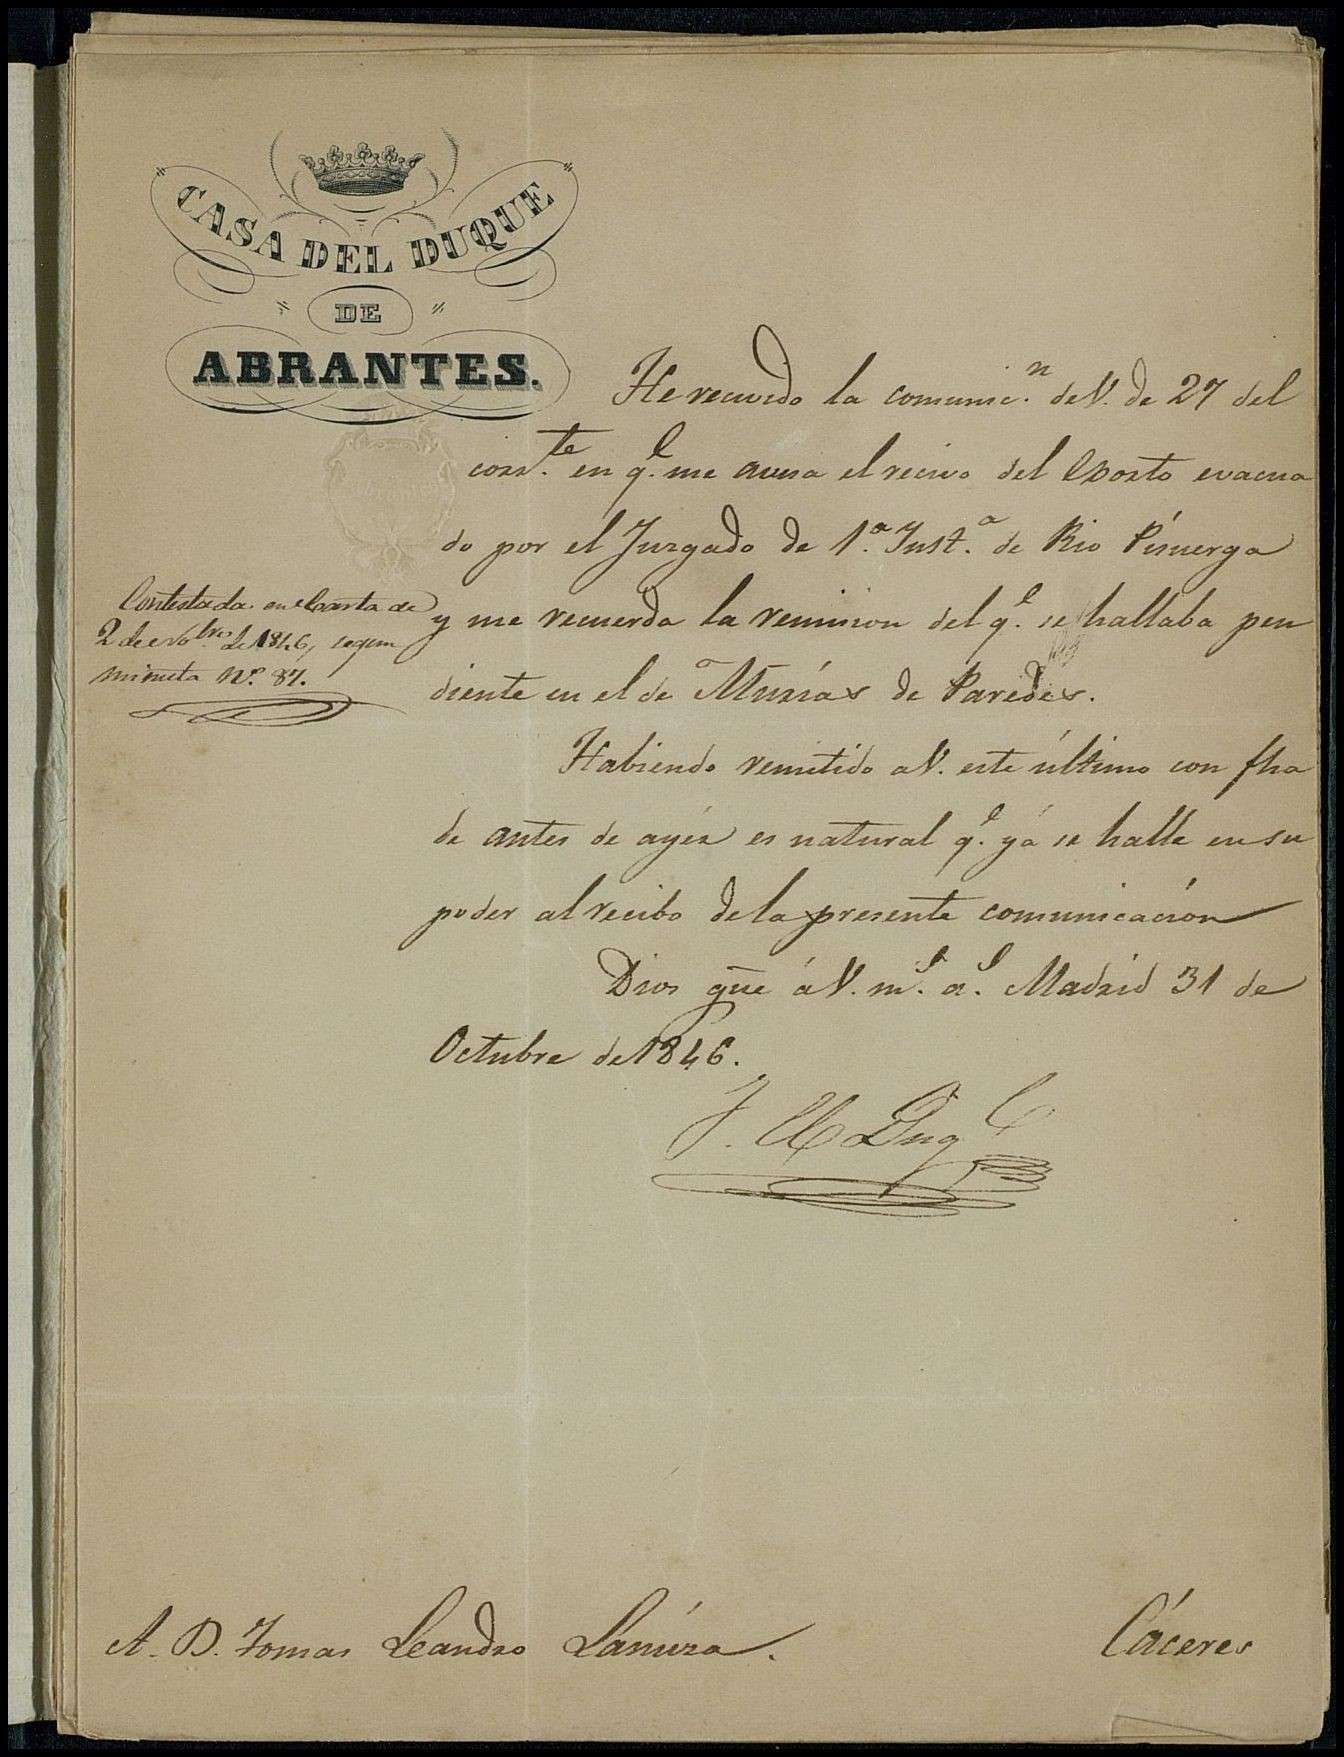 CASA DEL DUQUE
DE
ABRANTES.
He recivido la comunic.n de V. de 27 del
corr.te en q.e me avisa el recivo del Esorto evacua
do por el Juzgado de 1.a Inst.a de Rio Pisuerga
y me recuerda la remision del q.e se hallaba pen
diente en el de Murías de Paredes.
Habiendo remitido a V. este último con fha
de antes de ayér es natural q.e yá se halle en su
poder al recibo de la presente comunicación
Dios gue á V. m.s a.s Madrid 31 de
Octubre de 1846.
Contestada en Carta de
2 de Nobre. de 1846, segun
minuta N.o 87.
A. D. Tomas Leandro Lanúza.
Cáceres